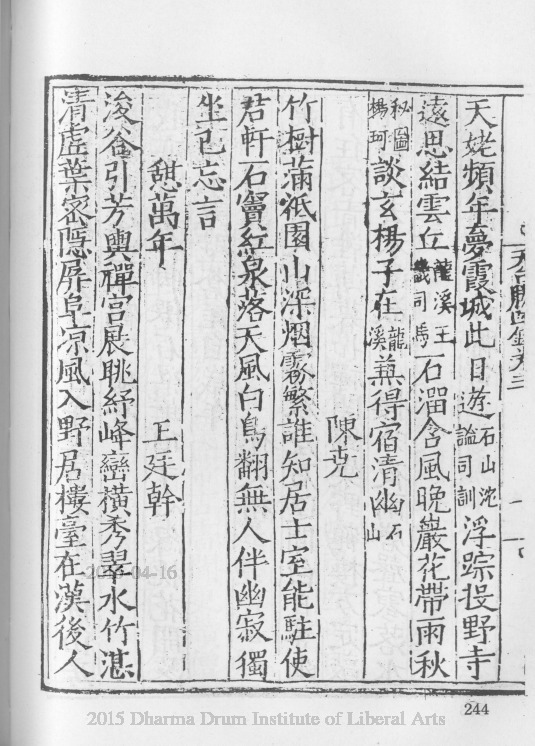 天台勝蹟錄卷三
天姥頻年夢霞城此日遊石山沱謚司訓浮踪投野寺
遠思結雲丘龍溪王畿司馬石溜含風晚巖花帶雨秋
秘圖楊珂談玄楊子在龍溪兼得宿清幽石山
陳克
竹樹蒲祇園山深烟霧繁誰知居士室能駐使
君軒石竇紅泉落天風白鳥翻無人伴幽寂獨
坐已忘言
憇萬年
王廷幹
浚谷引芳輿禪宫展眺紓峰巒橫秀翠水竹湛
清虛葉密隱屏阜凉風入野居樓臺在漢後人
244
2015-04-16
2015 Dharma Drum Institute of Liberal Arts